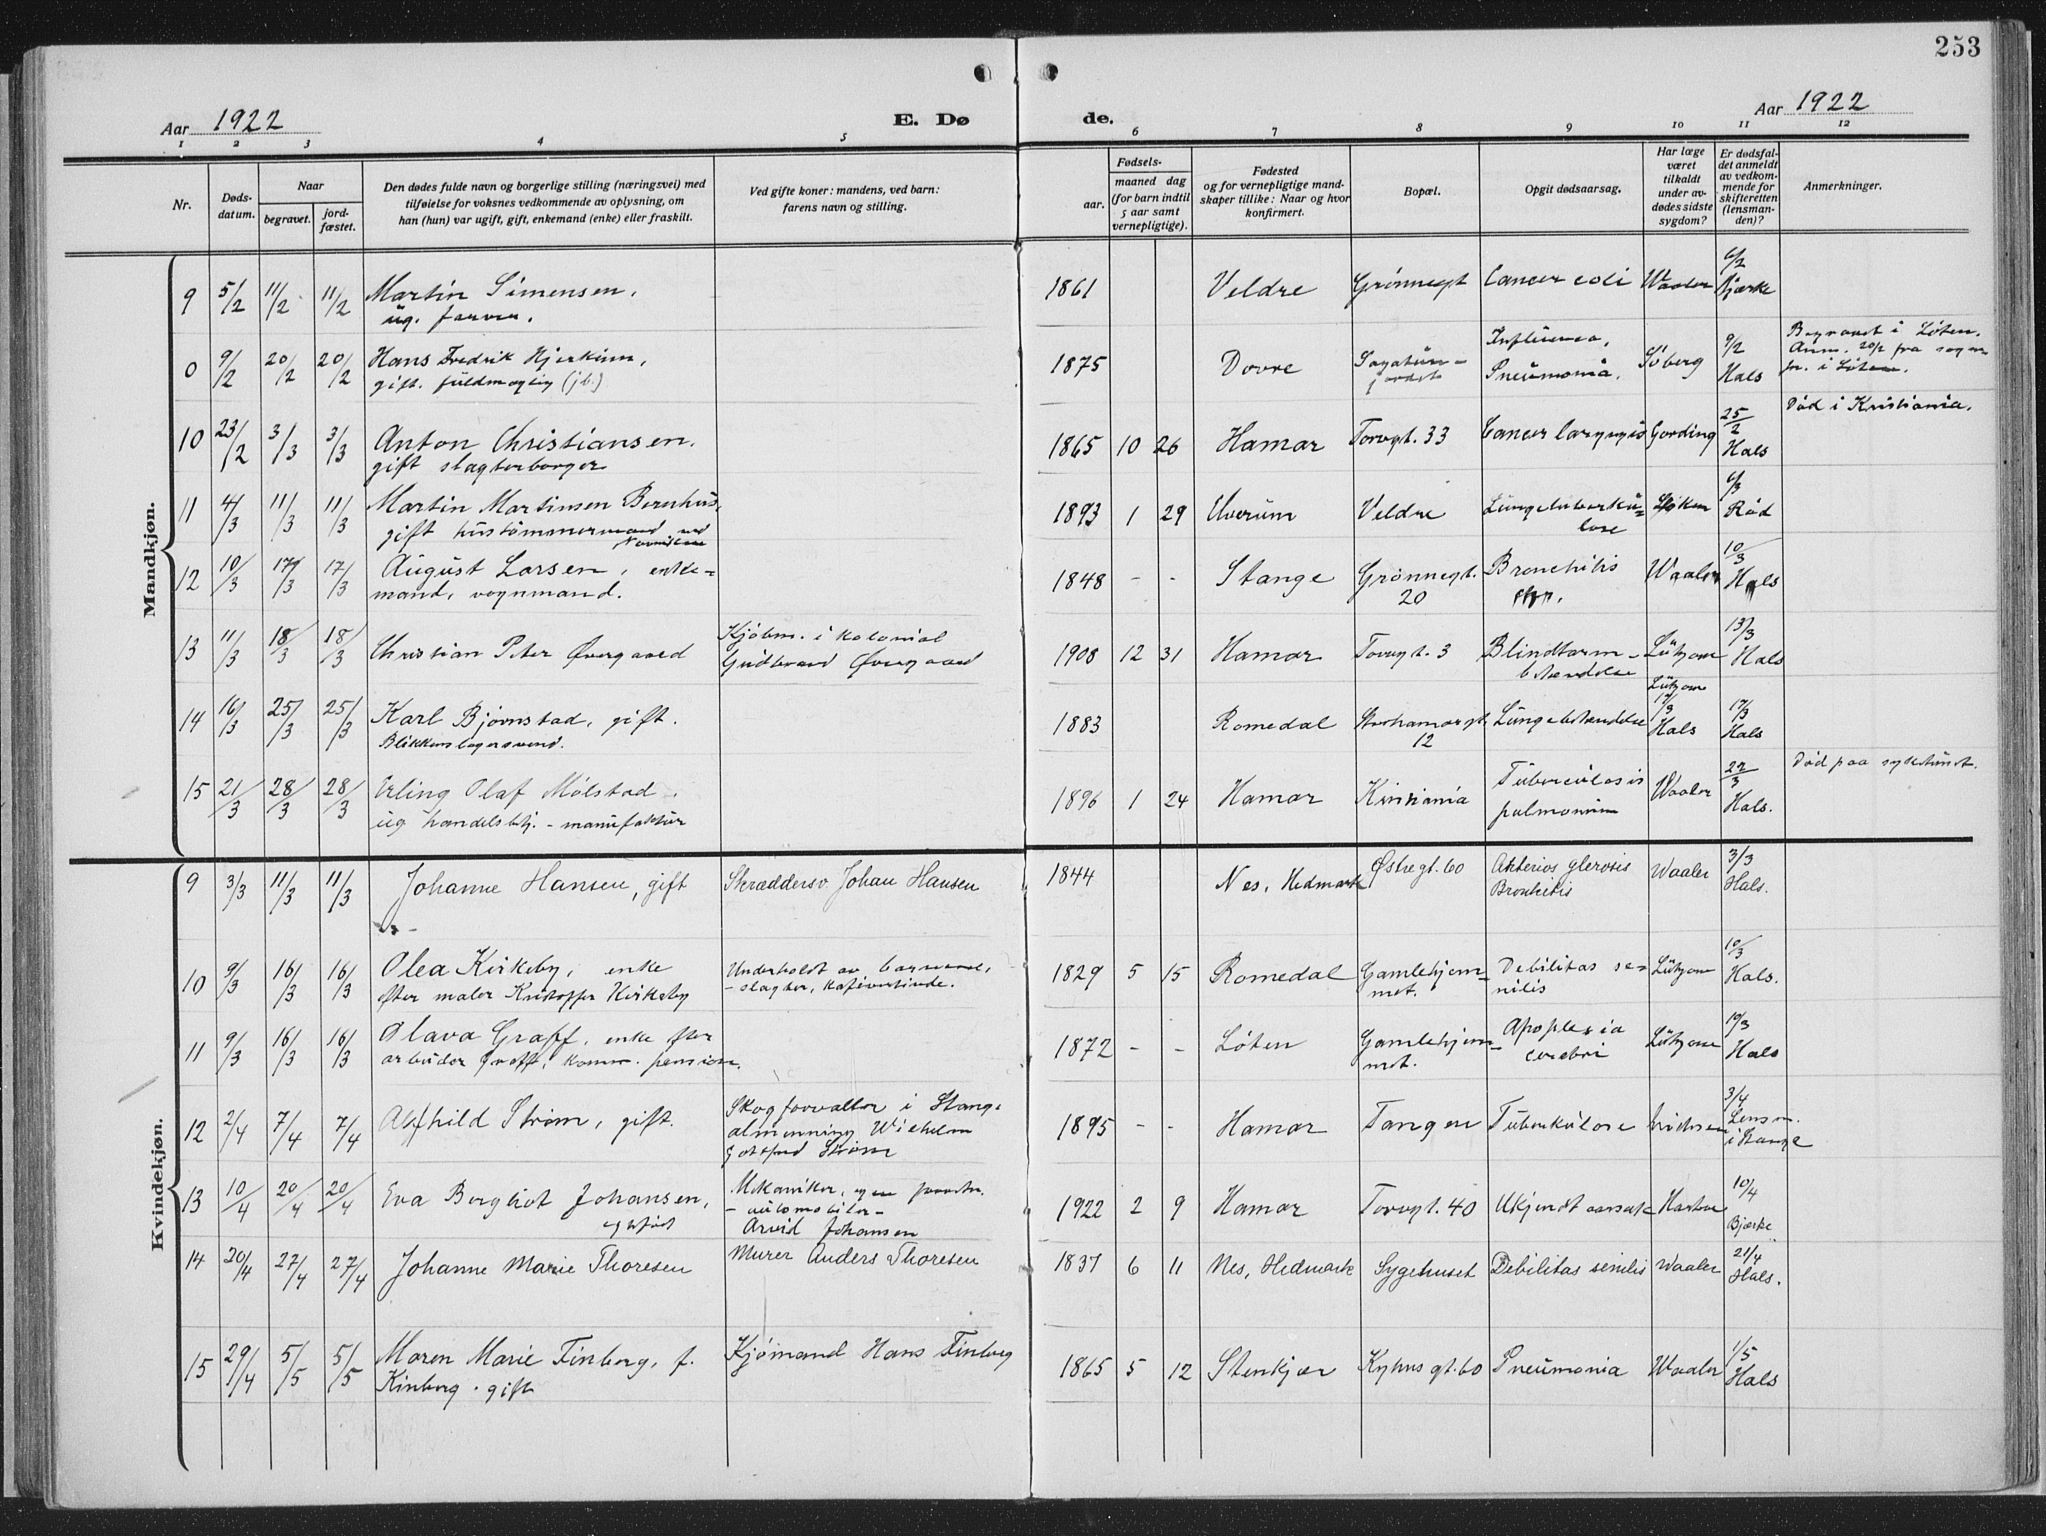 253
Aar 1922
E. Døde.
Aar 1922
1 2 3 4 5 6 7 8 9 10 11 12
Nr.
Døds-
datum.
Naar
begravet.
jord-
fæstet.
Den dødes fulde navn og borgerlige stilling (næringsvei) med
tilføielse for voksnes vedkommende av oplysning, om
han (hun) var ugift, gift, enkemand (enke) eller fraskilt.
Ved gifte koner: mandens, ved barn:
farens navn og stilling.
Fødsels-
aar.
maaned dag
(for barn indtil
5 aar samt
vernepligtige).
Fødested
og for vernepligtige mand-
skaper tillike: Naar og hvor
konfirmert.
Bopæl.
Opgit dødsaarsag.
Har læge
været
tilkaldt
under av-
dødes sidste
sygdom?
Er dødsfal-
det anmeldt
av vedkom-
mende for
skifteretten
(lensman-
den)?
Anmerkninger.
Mandkjøn.
9 5/2 11/2 11/2 Martin Simensen, 1861 Veldre Grønnegt Cancer coli Waaler 6/2 Bjerke
ug. farver.
0 9/2 20/2 20/2 Hans Fredrik Hjerkinn, 1875 Dovre Influenca, Søberg 9/2 Hals Begravet i Løten.
gift. fuldmægtig (jb.) Pneumonia. Anm. 20/2 fra sogne-
pr. i Løten.
10 23/2 3/3 3/3 Anton Christiansen. 1865 10 26 Hamar Torvgt. 33 Cancer laryngis Gording 25/2 Hals Død i Kristiania.
gift slagterborger
11 4/3 11/3 11/3 Martin Martinsen Bernhus, 1893 1 29 Elverum Veldre Lungetuberku- 6/3 Rød
gift hustømmermand ved lose
12 10/3 17/3 17/3 August Larsen, enke- 1848 - - Stange Grønnegt. Bronchitis Waaler 10/3 Hals
mand, vognmand. 20 chr.
13 11/3 18/3 18/3 Christian Peter Øvergaard Kjøbm. i kolonial 1908 12 31 Hamar Torvgt. 3 Blindtarm- Lützow 13/3 Hals
Gudbrand Øvergaard betændelse
14 16/3 25/3 25/3 Karl Bjørnstad, gift. 1883 Romedal Storhamargt. Lungebetændelse Lützow 17/3 Hals 17/3 Hals
Blikkenslagersvend. 12
15 21/3 28/3 28/3 Erling Olaf Mølstad. 1896 1 24 Hamar Kristiania Tuberculosis Waaler 22/3 Hals. Død paa sykehuset.
ug handelsbetj. - manufaktur pulmonum
Kvindekjøn.
9 3/3 11/3 11/3 Johanne Hansen, gift Skræddersv. Johan Hansen 1844 Nes, Hedmark Østregt. 60 Akterios glerosis Waaler 3/3 Hals.
Bronkitis
10 9/3 16/3 16/3 Olea Kirkeby, enke Underholdt av barnene, 1829 5 15 Romedal Gamlehjem- Debilitas se- Lützow 10/3 Hals.
efter maler Kristoffer Kirkeby - slagter, kafevertinde. met. nilis
11 9/3 16/3 16/3 Olava Graff, enke efter 1872 - - Løten Gamlehjem- Apoplexia Lützow 10/3 Hals
arbeider Graff, komm. pension. met. cerebri
12 2/4 7/4 7/4 Alfhild Strøm, gift. Skogforvalter i Stange 1895 - - Hamar Tangen Tuberkulose 3/4 Lensm.
almenning Wilhelm i Stange
Gotfred Strøm
13 10/4 20/4 20/4 Eva Bergliot Johansen, Mekaniker, egen forretn. 1922 2 9 Hamar Torvgt. 40 Ukjendt aarsak 10/4 Bjerke
- automobiler -
Arvid Johansen
14 20/4 27/4 27/4 Johanne Marie Thoresen Murer Anders Thoresen 1837 6 11 Nes, Hedmark Sygehuset Debilitas senilis Waaler 21/4 Hals.
15 29/4 5/5 5/5 Maren Marie Finborg, f. Kjømand Hans Finborg 1865 5 12 Stenkjær gt. 60 Pneumonia Waaler 1/5 Hals
Kinberg. gift